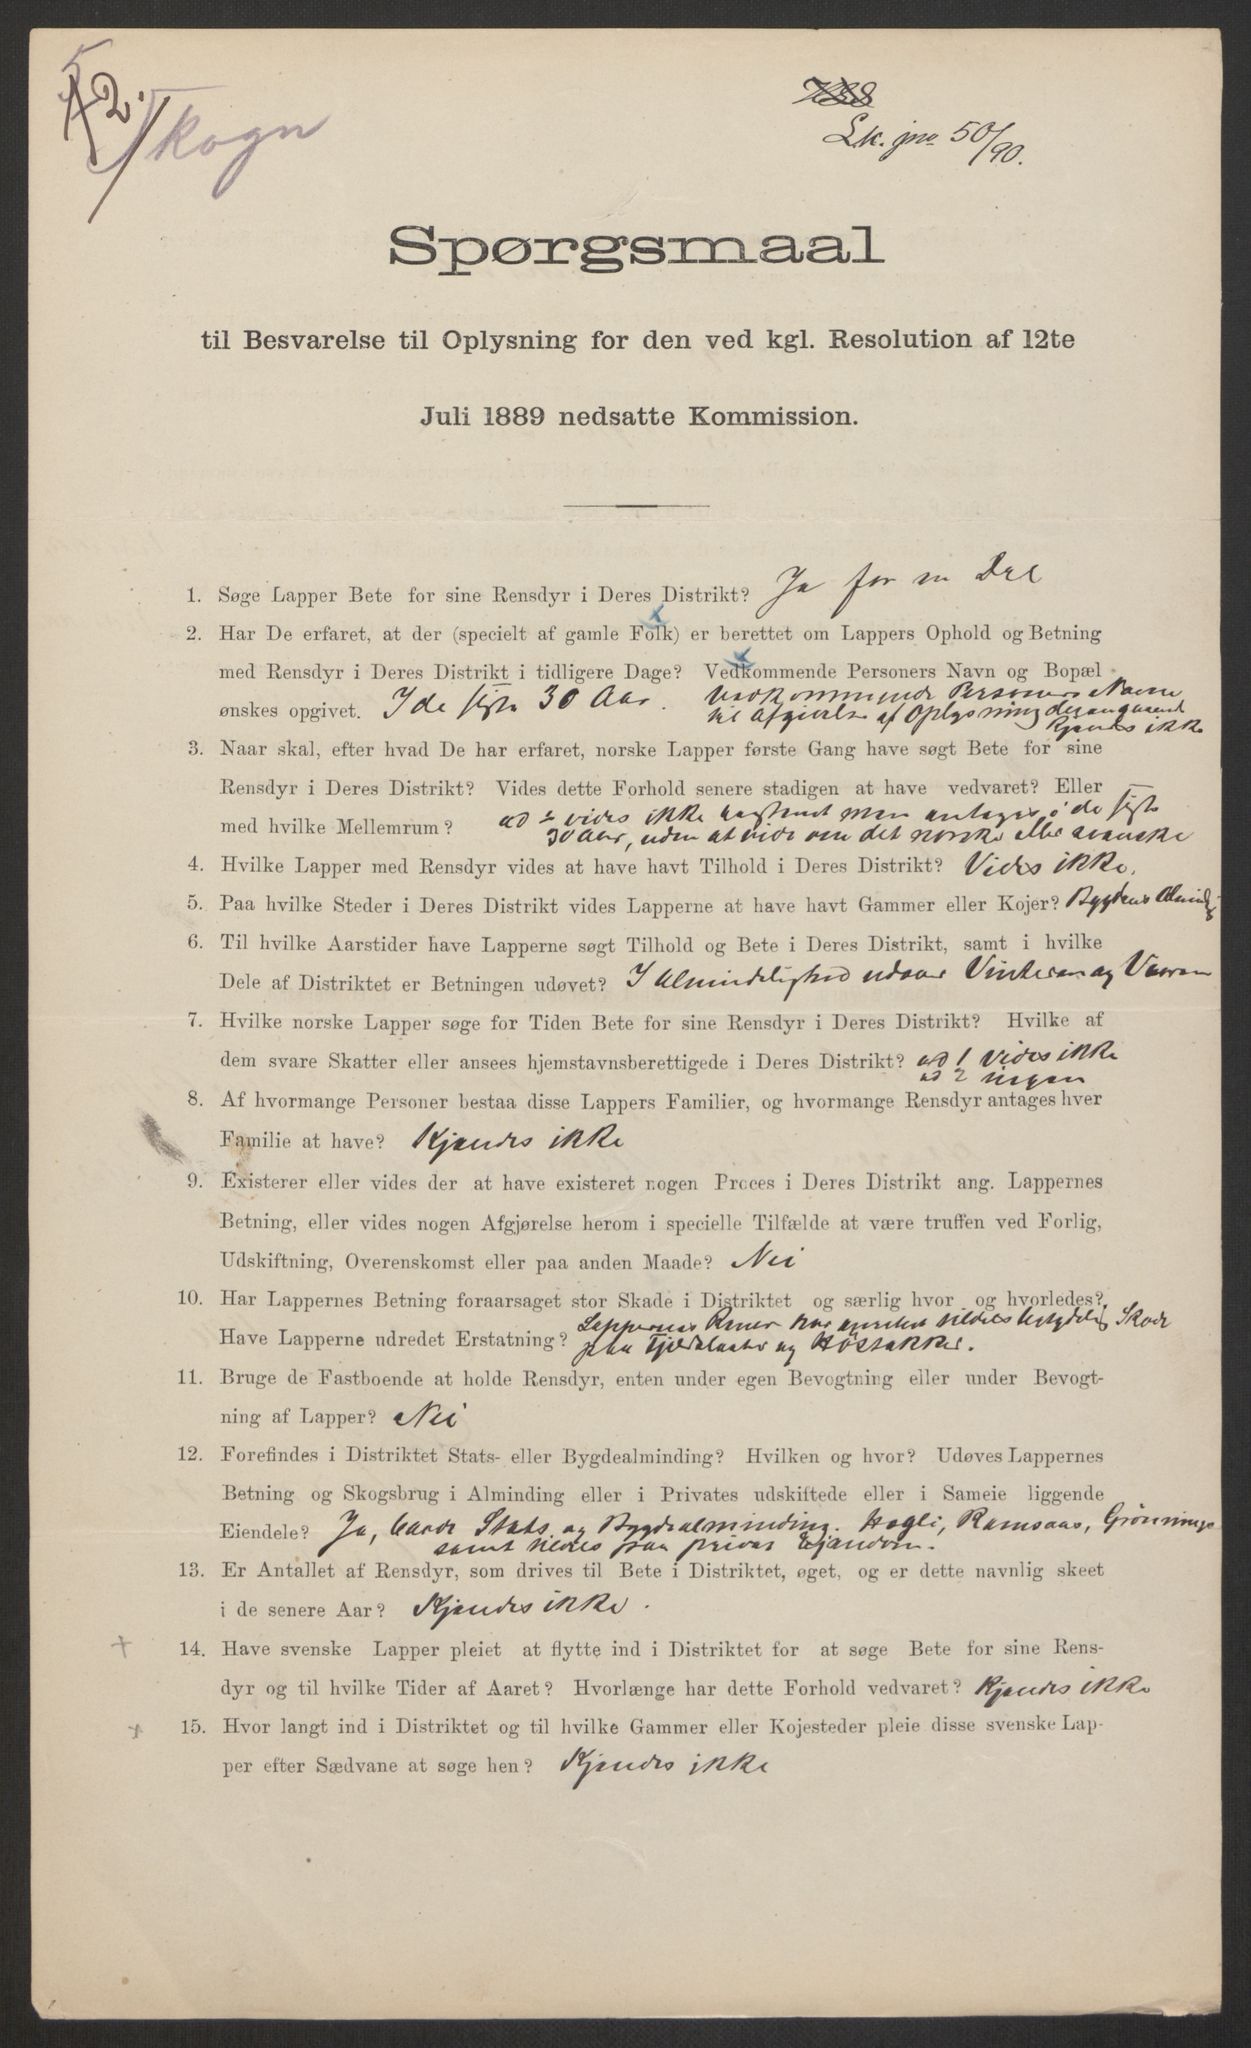 12.
Skogn
Lk. jno 50/90.
Spørgsmaal
til Besvarelse til Oplysning for den ved kgl. Resolution af 12te
Juli 1889 nedsatte Kommission.
1. Søge Lapper Bete for sine Rensdyr i Deres Distrikt? Ja for en Del
2. Har De erfaret, at der (specielt af gamle Folk) er berettet om Lappers Ophold og Betning
med Rensdyr i Deres Distrikt i tidligere Dage? Vedkommende Personers Navn og Bopæl
ønskes opgivet. I de sidste 30 Aar. Vedkommende Personers Navne
til Afgivelse af Oplysning desangaaende
kjendes ikke
3. Naar skal, efter hvad De har erfaret, norske Lapper første Gang have søgt Bete for sine
Rensdyr i Deres Distrikt? Vides dette Forhold senere stadigen at have vedvaret? Eller
med hvilke Mellemrum? ad 2 vides ikke bestemt men antages i de sidste
30 Aar, uden at vide om det norske eller svenske
4. Hvilke Lapper med Rensdyr vides at have havt Tilhold i Deres Distrikt? Vides ikke.
5. Paa hvilke Steder i Deres Distrikt vides Lapperne at have havt Gammer eller Kojer? Bygdens Alminding
6. Til hvilke Aarstider have Lapperne søgt Tilhold og Bete i Deres Distrikt, samt i hvilke
Dele af Distriktet er Betningen udøvet? I Almindelighed udover Vinteren og Vaaren
7. Hvilke norske Lapper søge for Tiden Bete for sine Rensdyr i Deres Distrikt? Hvilke af
dem svare Skatter eller ansees hjemstavnsberettigede i Deres Distrikt? ad 1 vides ikke
ad 2 ingen
8. Af hvormange Personer bestaa disse Lappers Familier, og hvormange Rensdyr antages hver
Familie at have? Kjendes ikke
9. Existerer eller vides der at have existeret nogen Proces i Deres Distrikt ang. Lappernes
Betning, eller vides nogen Afgjørelse herom i specielle Tilfælde at være truffen ved Forlig,
Udskiftning, Overenskomst eller paa anden Maade? Nei
10. Har Lappernes Betning foraarsaget stor Skade i Distriktet og særlig hvor og hvorledes?
Have Lapperne udredet Erstatning? Lappernes Rener har anrettet tildels betydelig Skade
paa Fjeldslaater og Høstakker.
11. Bruge de Fastboende at holde Rensdyr, enten under egen Bevogtning eller under Bevogt-
ning af Lapper? Nei
12. Forefindes i Distriktet Stats- eller Bygdealminding? Hvilken og hvor? Udøves Lappernes
Betning og Skogsbrug i Alminding eller i Privates udskiftede eller i Sameie liggende
Eiendele? Ja, baade Stats og Bygdealminding. Hogli, Ramsaas, Grønninge
samt tildels paa privat Ejendom.
13. Er Antallet af Rensdyr, som drives til Bete i Distriktet, øget, og er dette navnlig skeet
i de senere Aar? Kjendes ikke.
14. Have svenske Lapper pleiet at flytte ind i Distriktet for at søge Bete for sine Rens-
dyr og til hvilke Tider af Aaret? Hvorlænge har dette Forhold vedvaret? Kjendes ikke
15. Hvor langt ind i Distriktet og til hvilke Gammer eller Kojesteder pleie disse svenske Lap-
per efter Sædvane at søge hen? Kjendes ikke